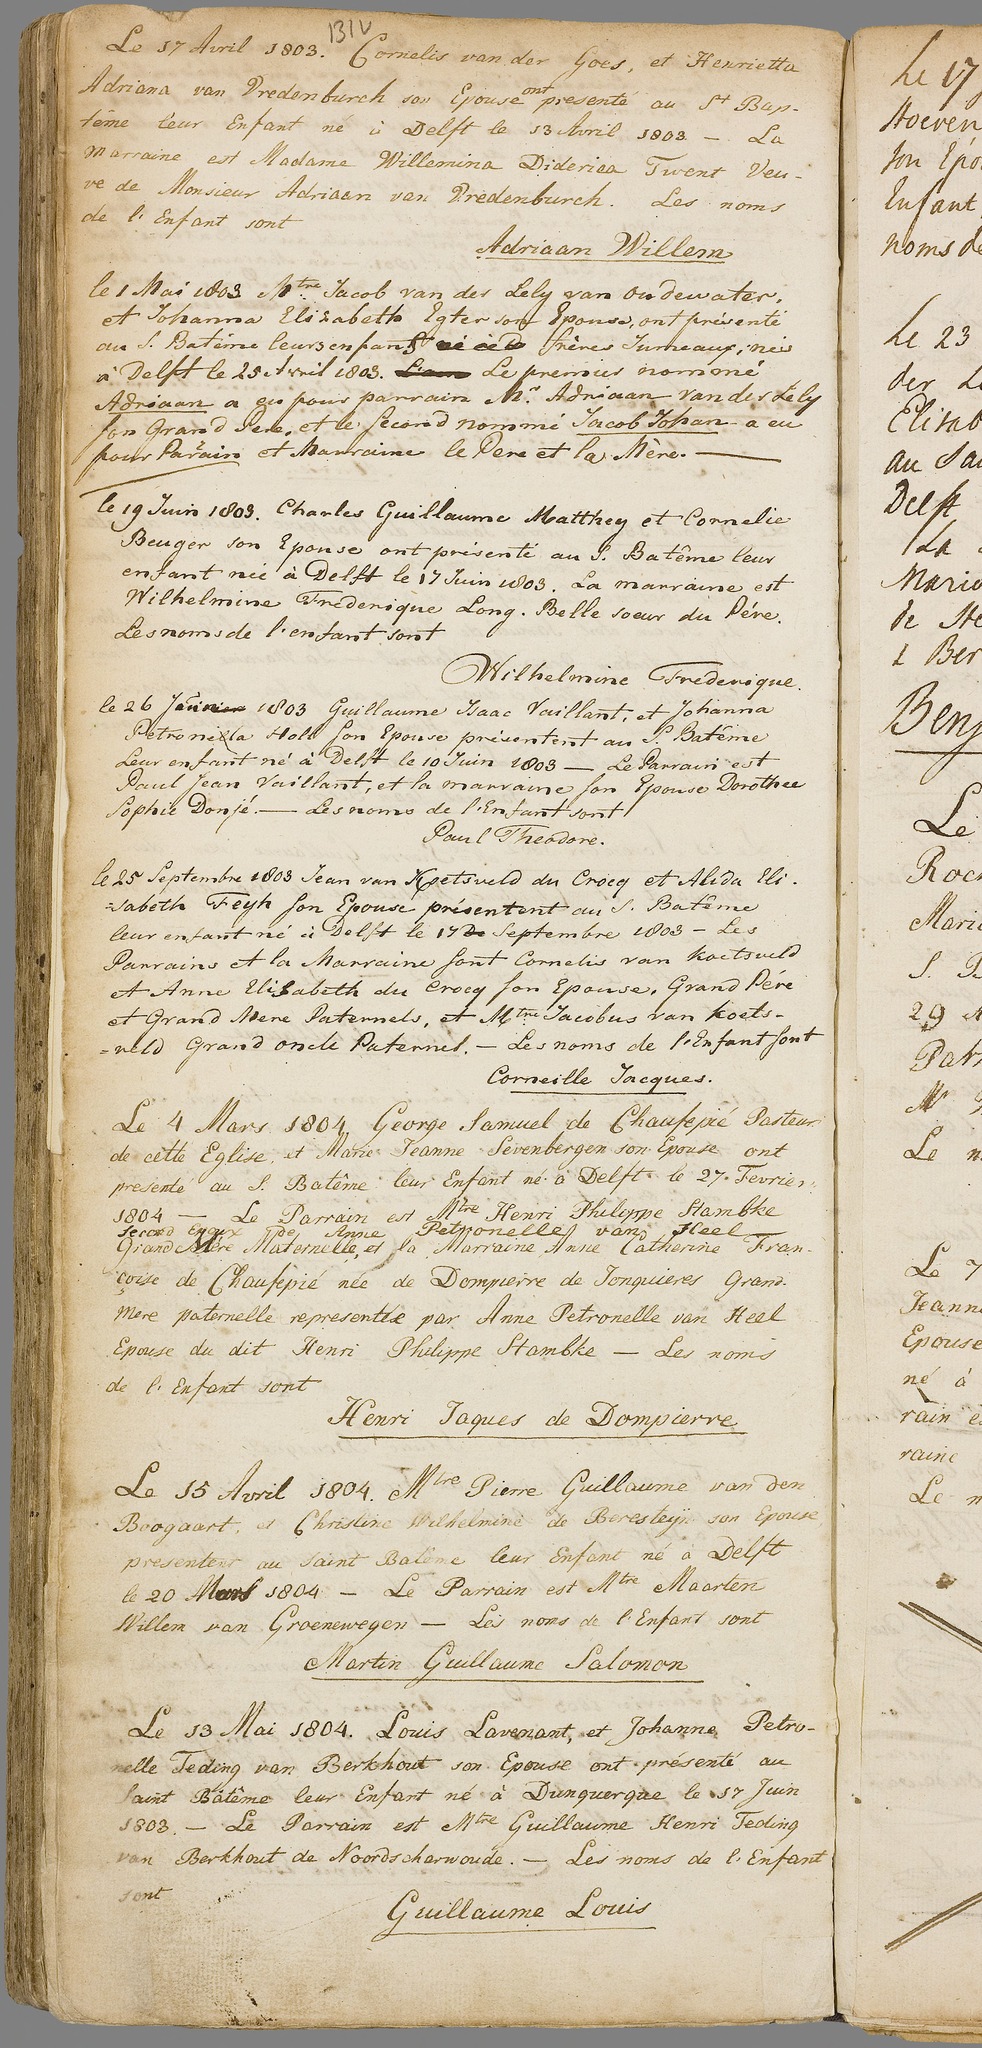 131v
Le 17 Avril 1803. Cornelis van der Goes, et Henrietta
Adriana van Vredenburch son Epouse ont presenté au St Bap-
tême leur Enfant né à Delft le 13 Avril 1803 — La
Marraine est Madame Willemina Dideriea Twent Veu-
ve de Monsieur Adriaan van Vredenburch. Les noms
de l'Enfant sont
Adriaan Willem
le 1 Mai 1803 Mtre Jacob van des Lely van Oudewater,
et Johanna Elizabeth Egter son Epouse, ont présenté
au S. Batême leurs enfans frères Jumeaux, nés
à Delft le 25 Avril 1803. Le premier nommé
Adriaan a eu pour parrain Mr. Adriaan van des Lely
son Grand Pere, et le second nommé Jacob Johan a eu
pour Parrain et Marraine le Pere et la Mère. —
le 19 Juin 1803. Charles Guillaume Matthey et Cornelie
Beuger son Epouse ont présenté au S. Batême leur
enfant née à Delft le 17 Juin 1803. La marraine est
Wilhelmine Frederique Long. Belle soeur du Pére.
Les noms de l'enfant sont
Wilhelmine Frederique.
le 26 1803 Guillaume Isaac Vaillant, et Johanna
Petronella Holl son Epouse présentent au S. Batême
Leur enfant né à Delft le 10 Juin 1803 — Le Parrain est
Paul Jean Vaillant, et la marraine son Epouse Dorothee
Sophie Donjé. — Les noms de l'Enfant sont
Paul Theodore.
le 25 Septembre 1803 Jean van Koetsveld du Crocq et Alida Eli-
=sabeth Feyh son Epouse présentent au S. Batême
leur enfant né à Delft le 17 De Septembre 1803 — Les
Parrains et la Marraine sont Cornelis van Koetsveld
et Anne Elisabeth du Crocq son Epouse, Grand Pére
et Grand Mere Paternels, et Mtre Jacobus van Koets-
=veld Grand oncle Paternel. — Les noms de l'Enfant sont
Corneille Jacques.
Le 4 Mars 1804 George Samuel de Chaufepié Pasteur
de cette Eglise, et Marie Jeanne Sevenbergen son Epouse ont
presenté au S. Batême leur Enfant né à Delft le 27 Fevrier
1804 — Le Parrain est Mtre Henri Philippe Stambke
second Epoux de Anne Petronelle van Heel
Grand Mère Maternelle, et la Marraine Anne Catherine Fran-
çoise de Chaufepié née de Dompierre de Jonquieres Grand-
mere paternelle representée par Anne Petronelle van Heel
Epouse du dit Henri Philippe Stambke — Les noms
de l'Enfant sont
Henri Jaques de Dompierre
Le 15 Avril 1804. Mtre Pierre Guillaume van den
Boogaart, et Christine Wilhelmine de Beresteijn son Epouse
presentent au Saint Batême leur Enfant né à Delft
le 20 Mars 1804 — Le Parrain est Mtre Maarten
Willem van Groenewegen — Les noms de l'Enfant sont
Martin Guillaume Salomon
Le 13 Mai 1804. Louis Lavenant, et Johanne Petro-
nelle Teding van Berkhout son Epouse ont présenté au
Saint Batême leur Enfant né à Dunquerque le 17 Juin
1803. — Le Parrain est Mtre Guillaume Henri Teding
van Berkhout de Noordscharwoude. — Les noms de l'Enfant
sont
Guillaume Louis
Le 17
son Epo
Enfant
noms de
Le 23
der Le
Elisab
au Sai
Delft
La
Mario
de He
Benj
Le
Roch
Marie
S. B
29
Parr
Mr
Le n
Le 7
Jeanne
Epouse
né à
rain e
raine
Le n